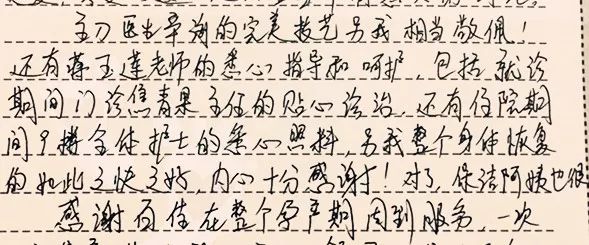 主刀医生辛海的完美技艺另我相当敬佩！
还有蒋玉莲老师的悉心指导和呵护，包括就诊
期间门诊焦青果主任的贴心诊治，还有住院期
间9楼全体护士的悉心照料，另我整个身体恢复
的如此之快之好，内心十分感谢！对了，保洁阿姨也很
感谢百佳在整个孕产期周到服务，一次